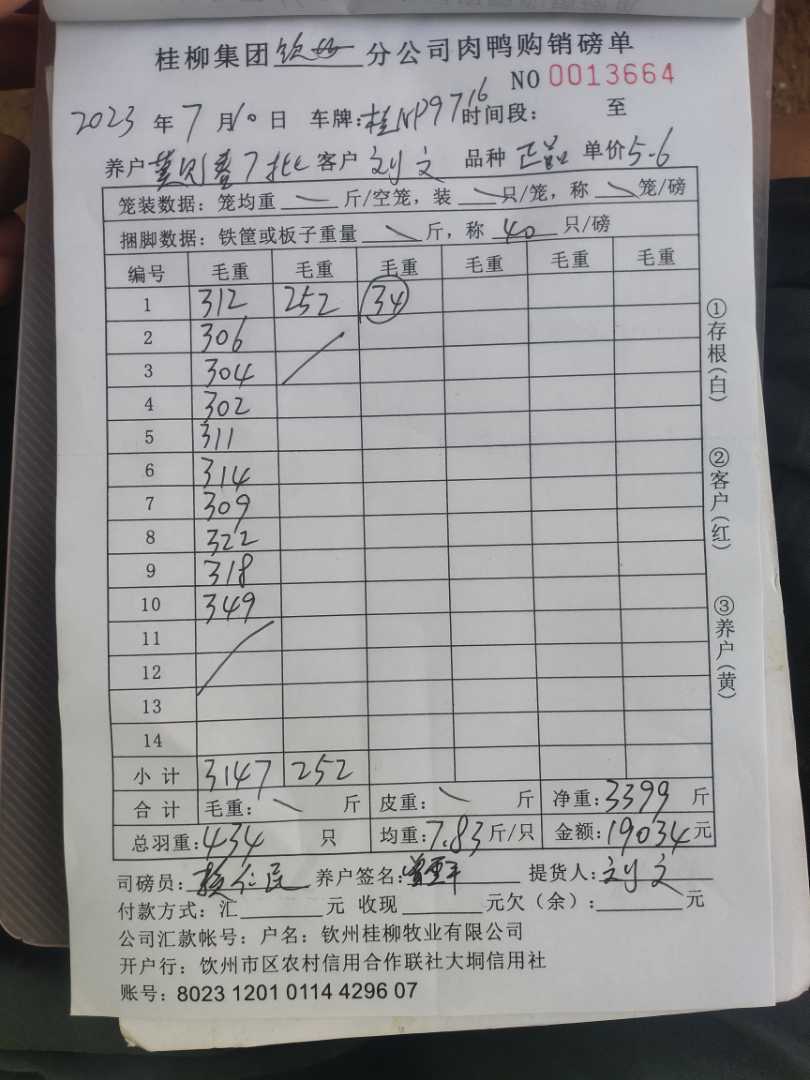 桂柳集团钦州分公司肉鸭购销磅单
NO 0013664
2023 年 7 月 10 日 车牌:桂NP9716 时间段: 至
养户 7批 客户 刘文 品种 正品 单价 5.6
笼装数据: 笼均重 斤/空笼, 装 只/笼, 称 笼/磅
捆脚数据: 铁筐或板子重量 斤, 称 40 只/磅
编号 毛重 毛重 毛重 毛重 毛重 毛重
1 312 252 34
2 306
3 304
4 302
5 311
6 314
7 309
8 322
9 318
10 349
11
12
13
14
小计 3147 252
合计 毛重: 斤 皮重: 斤 净重: 3399 斤
总羽重: 434 只 均重: 7.83 斤/只 金额: 19034 元
司磅员: 养户签名: 提货人: 刘文
付款方式: 汇 元 收现 元欠(余): 元
公司汇款帐号: 户名: 钦州桂柳牧业有限公司
开户行: 饮州市区农村信用合作联社大垌信用社
账号: 8023 1201 0114 4296 07
①存根(白)
②客户(红)
③养户(黄)